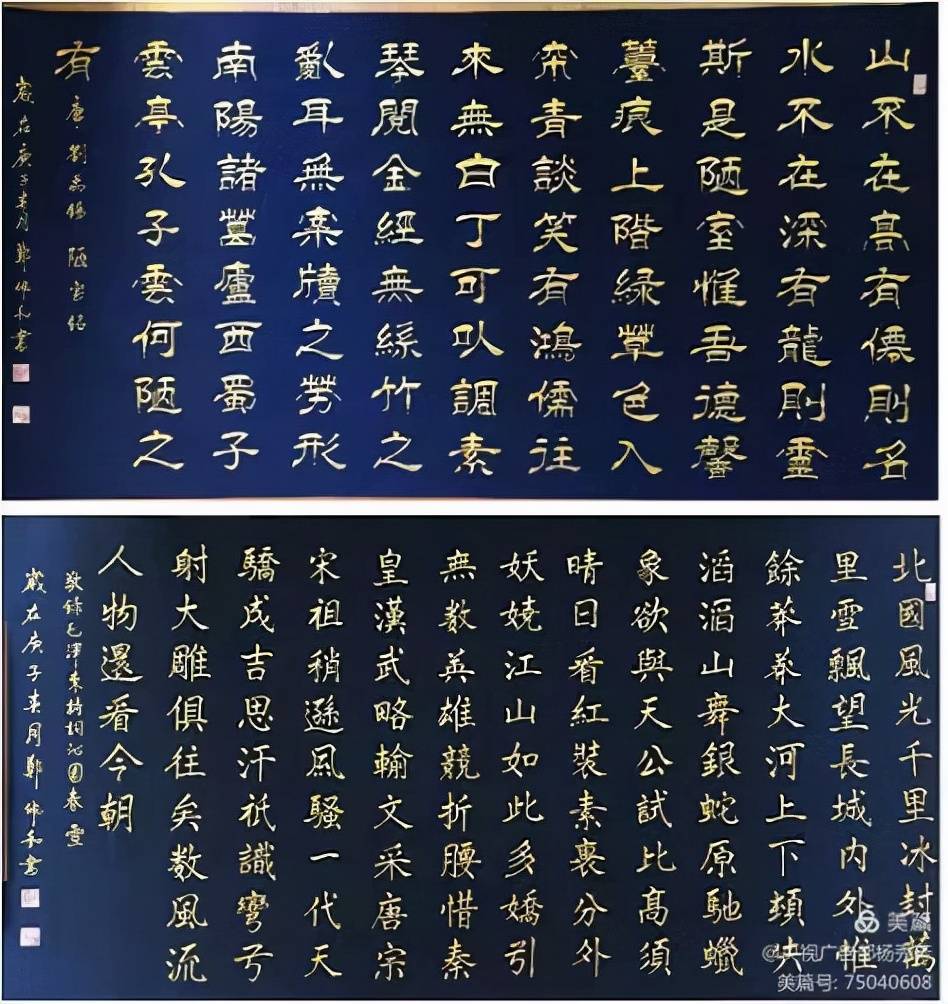 山不在高有僊則名
水不在深有龍則靈
斯是陋室惟吾德馨
薹痕上階緑草色入
帘青談笑有鴻儒往
來無白丁可以調素
琴閱金經無絲竹之
亂耳無案牘之勞形
南陽諸葛廬西蜀子
雲亭孔子雲何陋之
有
唐劉禹錫陋室銘
歲在庚子春月鄭和書
北國風光千里冰封萬
里雪飄望長城内外惟
餘莽莽大河上下頓失
滔滔山舞銀蛇原馳蠟
象欲與天公試比髙須
晴日看紅裝素裹分外
妖嬈江山如此多嬌引
無数英雄競折腰惜秦
皇漢武略輸文采唐宗
宋祖稍遜風騷一代天
驕成吉思汗祇識彎弓
射大雕俱往矣数風流
人物還看今朝
敬録毛澤東詩詞沁園春雪
歲在庚子春月鄭和書
美篇
@央视广告部杨秀
美篇号: 75040608